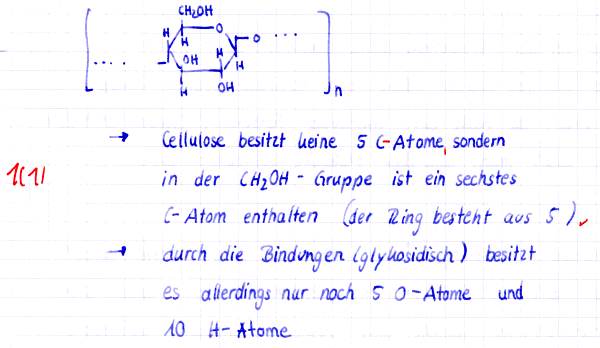 CH₂OH
O
H
H
H
O ...
....
OH
H
H
H
OH
n
→ Cellulose besitzt keine 5 C-Atome, sondern
1(1) in der CH₂OH - Gruppe ist ein sechstes
C-Atom enthalten (der Ring besteht aus 5).
→ durch die Bindungen (glykosidisch) besitzt
es allerdings nur noch 5 O-Atome und
10 H-Atome